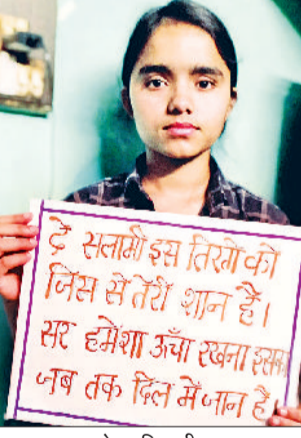 दे सलामी इस तिरंगे को
जिस से तेरी शान है।
सर हमेशा ऊँचा रखना इसका
जब तक दिल में जान है